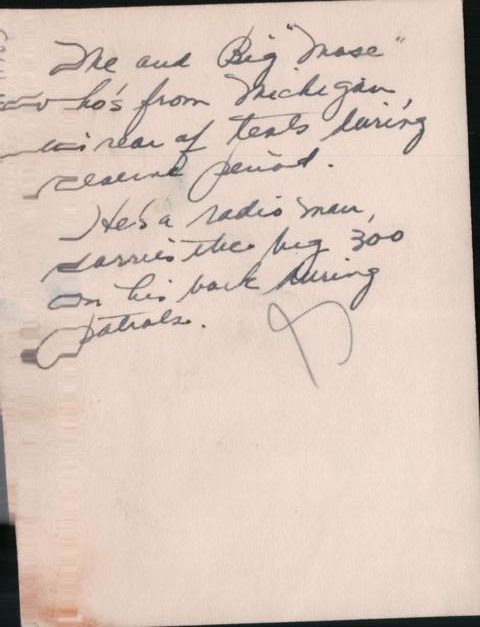 Me and Big "Mose"
who's from Michigan,
in rear of tents during
reserve period.
He's a radio man,
carries the big 300
on his back during
patrols.